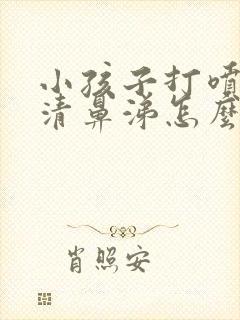 小孩子打喷
清鼻涕怎麽
肖照安